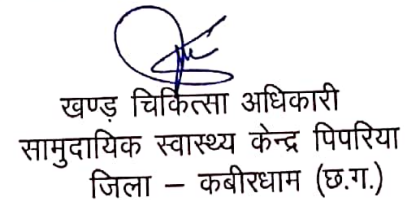 खण्ड चिकित्सा अधिकारी
सामुदायिक स्वास्थ्य केन्द्र पिपरिया
जिला – कबीरधाम (छ.ग.)